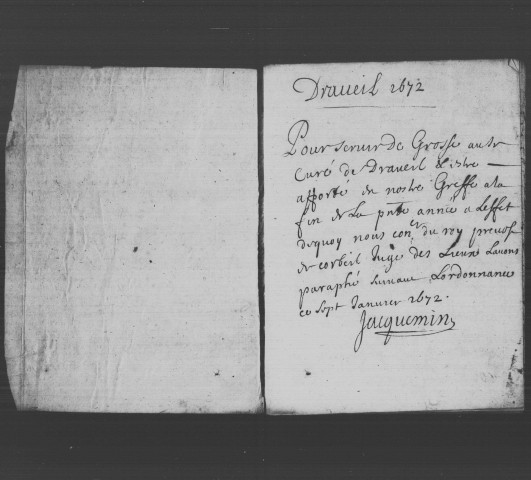 Draueil 1672
Pour seruir de Grosse au sr
Curé de Draueil & estre
apporté en nostre Greffe a la
fin de la pnte année a Leffet
dequoy nous coner du roy preuost
de corbeil Juge des Lieux Lauons
paraphé suiuant Lordonnance
ce Sept Januier 1672.
Jacquemin